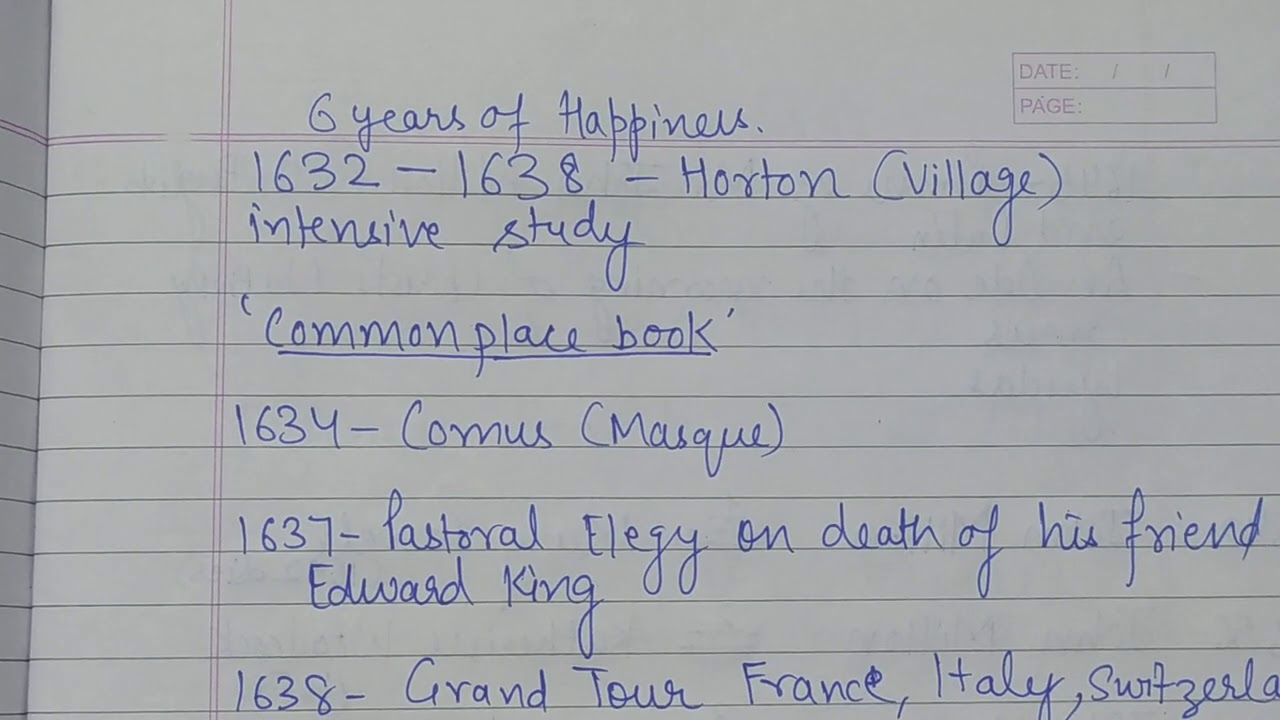 DATE: / /
PAGE:
6 years of Happiness.
1632 - 1638 - Horton (Village)
intensive study
'Commonplace book'
1634 - Comus (Masque)
1637 - Pastoral Elegy on death of his friend
Edward King
1638 - Grand Tour France, Italy, Switzerla